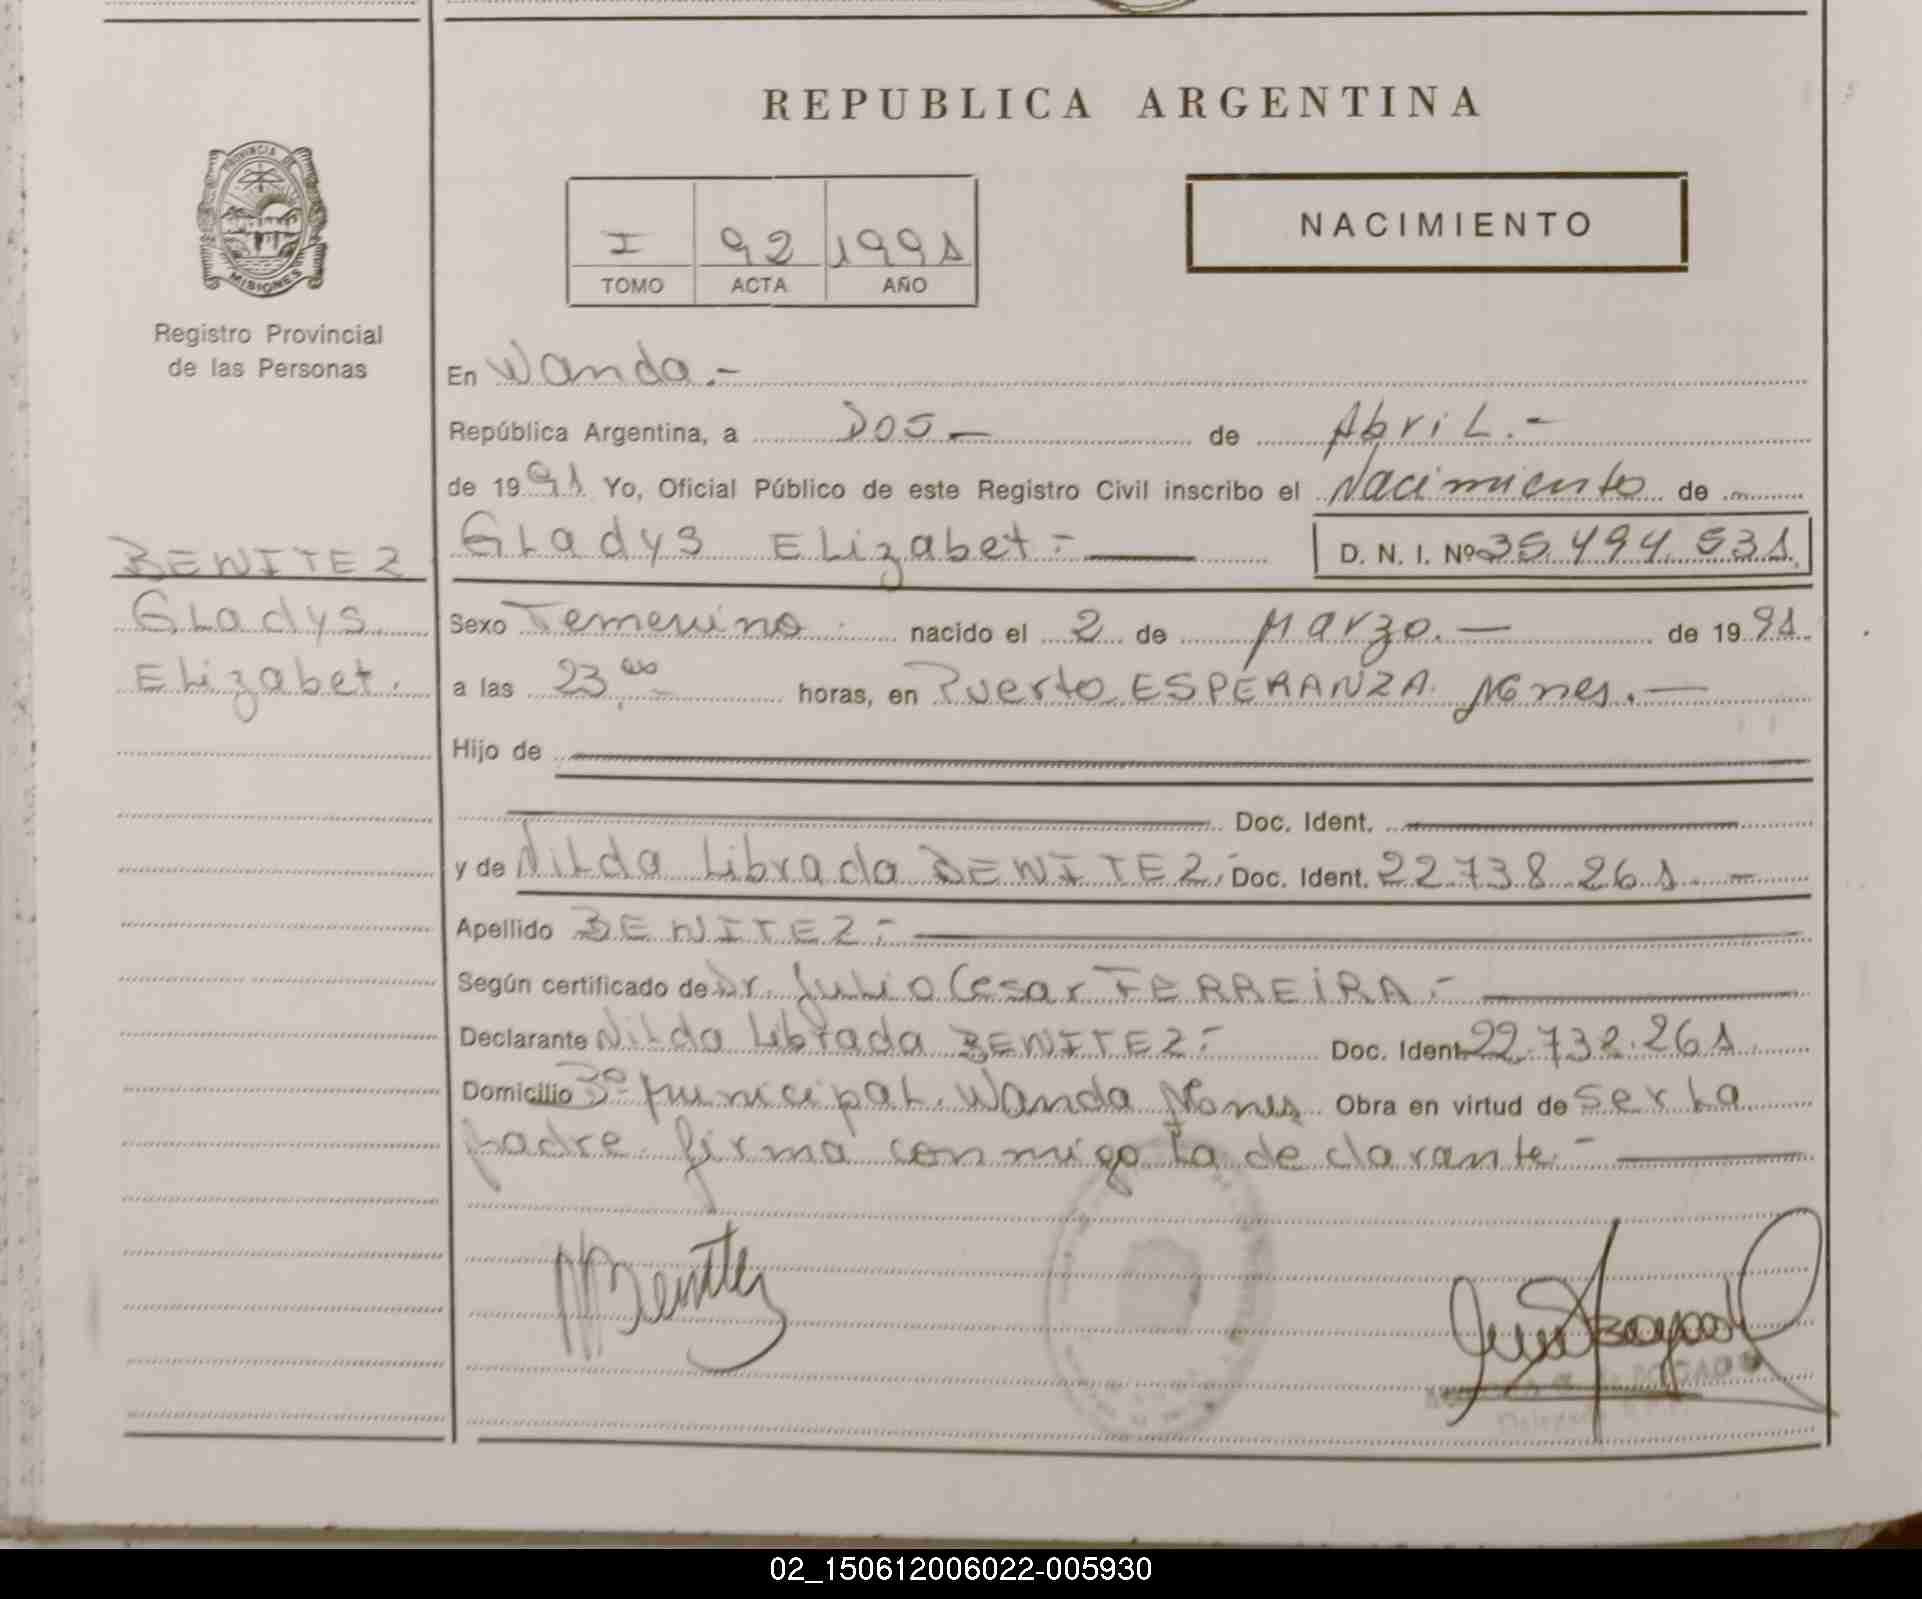 REPUBLICA ARGENTINA
PROVINCIA DE
MISIONES
Registro Provincial
de las Personas
I 92 1991
TOMO ACTA AÑO
NACIMIENTO
En Wanda.-
República Argentina, a Dos- de Abril.-
de 1991 Yo, Oficial Público de este Registro Civil inscribo el Nacimiento de
Gladys Elizabet=
D. N. I. Nº 35.494.531
BENITEZ
Gladys
Elizabet.
Sexo Femenino nacido el 2 de Marzo.- de 1991.
a las 23,00- horas, en Puerto ESPERANZA. Mnes.-
Hijo de
Doc. Ident.
y de Nilda Librada BENITEZ.- Doc. Ident. 22.738.261.-
Apellido BENITEZ=
Según certificado de Dr. Julio Cesar FERREIRA.-
Declarante Nilda Librada BENITEZ- Doc. Ident. 22.732.261
Domicilio Bº Municipal. Wanda Mones Obra en virtud de ser la
padre. firma conmigo la declarante.-
NBenitez
02_150612006022-005930